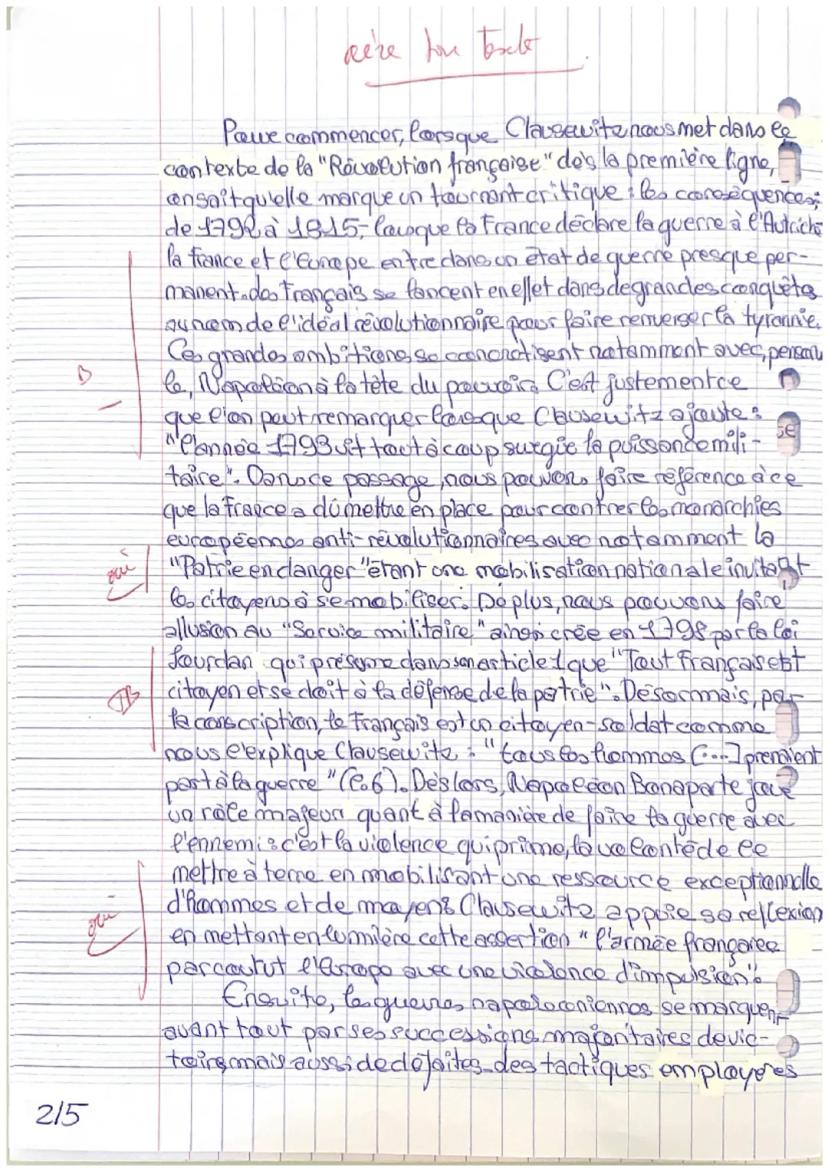 Pour commencer, lorsque Clausewitz nous met dans le
contexte de la "Révolution française" dès la première ligne,
on sait qu'elle marque un tournant critique : les conséquences;
de 1792 à 1815, lorsque la France déclare la guerre à l'Autriche
la france et l'Europe entre dans un état de guerre presque per-
manent. Les Français se lancent en effet dans de grandes conquêtes
au nom de l'idéal révolutionnaire pour faire renverser la tyrannie.
Ces grandes ambitions se concrétisent notamment avec, par exemp
le, Napoléon à la tête du pouvoir. C'est justement ce
B
que l'on peut remarquer lorsque Clausewitz ajoute :
"l'année 1793 vit tout à coup surgir la puissance mili-
taire". Dans ce passage, nous pouvons faire référence à ce
que la France a dû mettre en place pour contrer les monarchies
européennes anti-révolutionnaires avec notamment la
oui
"Patrie en danger" étant une mobilisation nationale invitant
les citoyens à se mobiliser. De plus, nous pouvons faire
allusion au "Service militaire" ainsi crée en 1798 par la loi
Jourdan qui présume dans son article 1 que "Tout Français est
TB
citoyen et se doit à la défense de la patrie". Désormais, par
la conscription, le Français est un citoyen-soldat comme
nous l'explique Clausewitz : "tous les hommes [...] prenaient
part à la guerre" (l.6). Dès lors, Napoléon Bonaparte joue
un rôle majeur quant à la manière de faire la guerre avec
l'ennemi : c'est la violence qui prime, la volonté de le
mettre à terre en mobilisant une ressource exceptionnelle
oui
d'hommes et de moyens Clausewitz appuie sa réflexion
en mettant en lumière cette assertion "l'armée française
parcourut l'Europe avec une violence d'impulsion".
Ensuite, les guerres napoléoniennes se marquent
avant tout par ses successions majoritaires de vic-
toires mais aussi de défaites des tactiques employées
2/5